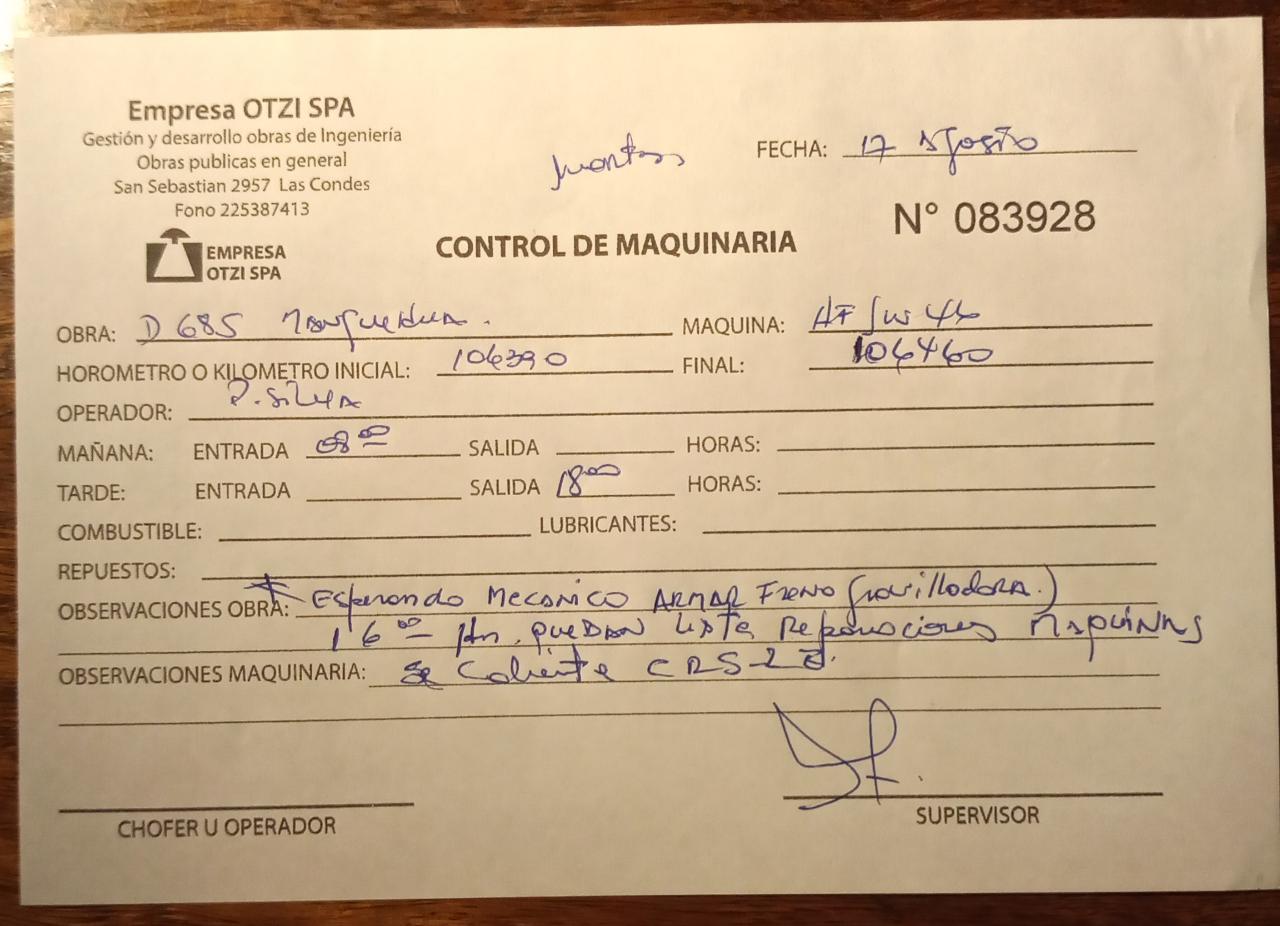 Empresa OTZI SPA
Gestión y desarrollo obras de Ingeniería
Obras publicas en general
San Sebastian 2957 Las Condes
Fono 225387413
EMPRESA
OTZI SPA
FECHA: 17 Agosto
N° 083928
CONTROL DE MAQUINARIA
OBRA: D 685
MAQUINA:
HOROMETRO O KILOMETRO INICIAL: 106390
FINAL: 106460
OPERADOR: P. Silva
MAÑANA: ENTRADA 08 00 SALIDA HORAS:
TARDE: ENTRADA SALIDA 18 00 HORAS:
COMBUSTIBLE: LUBRICANTES:
REPUESTOS:
OBSERVACIONES OBRA: Esperando MECANICO ARMAR FRENO (Gravilladora.)
16 00 Hrs. QUEDAN Lista Reparaciones MAQUINAS
OBSERVACIONES MAQUINARIA: Se Calienta
CHOFER U OPERADOR
SUPERVISOR